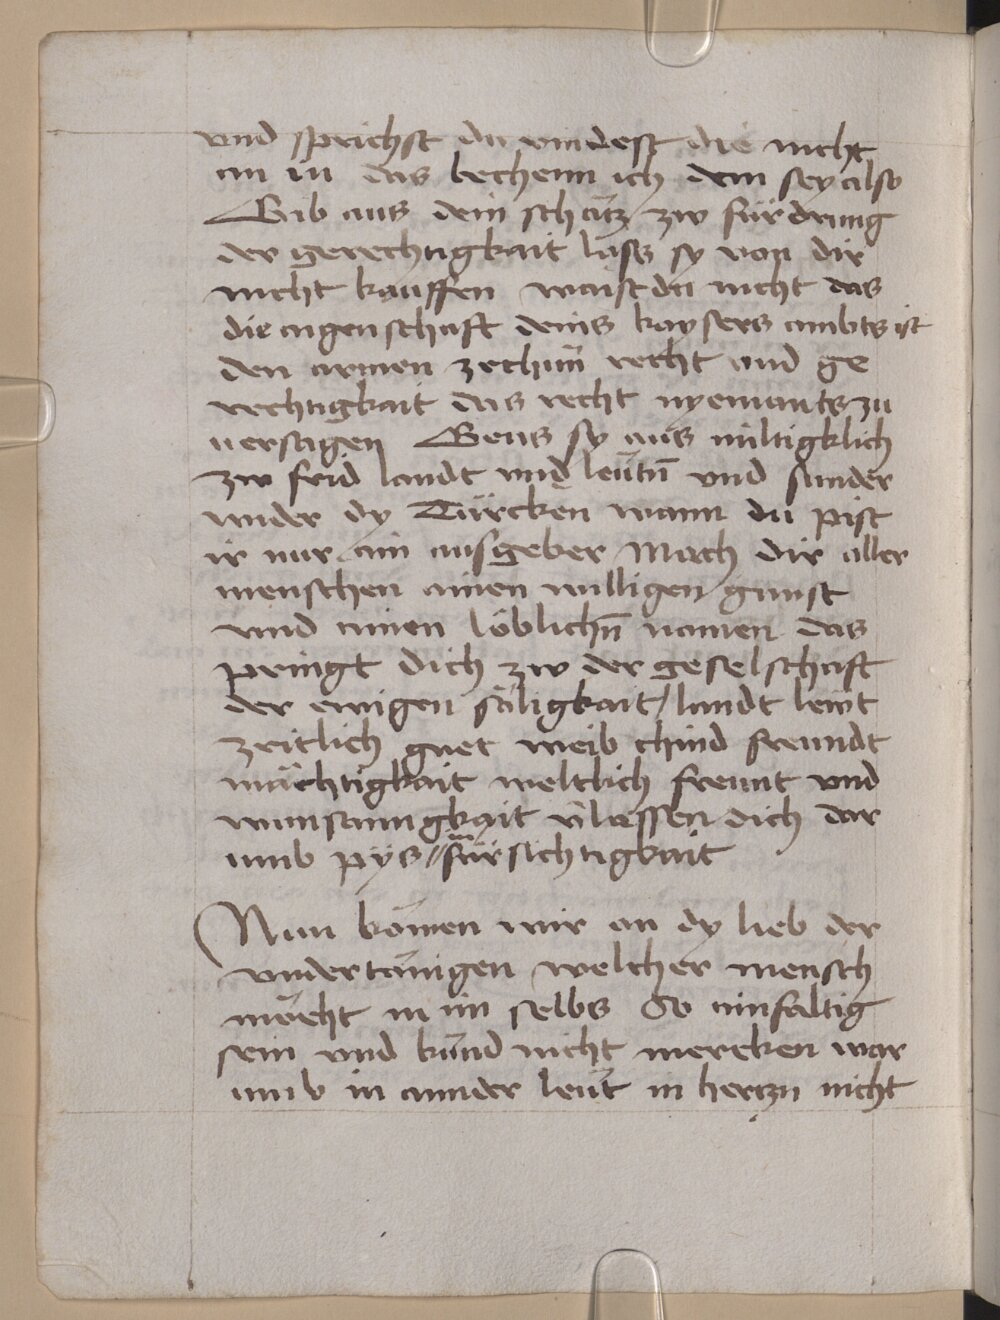 vnd sprichst du vindest die nicht
an in das bechenn ich dem sey also
Gib aus dein schätz zw fürdrung
der gerechtigkait lass sy von dir
nicht kauffen waist du nicht das
die aigenschaft deins kaysers ambts ist
den armen zethun recht vnd ge
rechtigkait das recht nyemants zu
uersagen Geus sy aus miltigklich
zw frid landt vnd leütn̄ vnd sunder
wider dy Türcken wann du pist
ir nur ain ausgeber Mach dir aller
menschen ainen willigen gunst
vnd ainen löblichn̄ namen das
pringt dich zw der geselschaft
der ewigen säligkait / landt lewt
zeitlich guet weib chind freundt
mächtigkait weltlich freunt vnd
wunsamgkait v̄lassen dich dar
umb pys // fürsichtigkait
Nun kömen wir an dy lieb der
vndertänigen welcher mensch
möcht in im selbs so ainfaltig
sein vnd künd nicht mercken war
umb in annder leüt in hertzn nicht